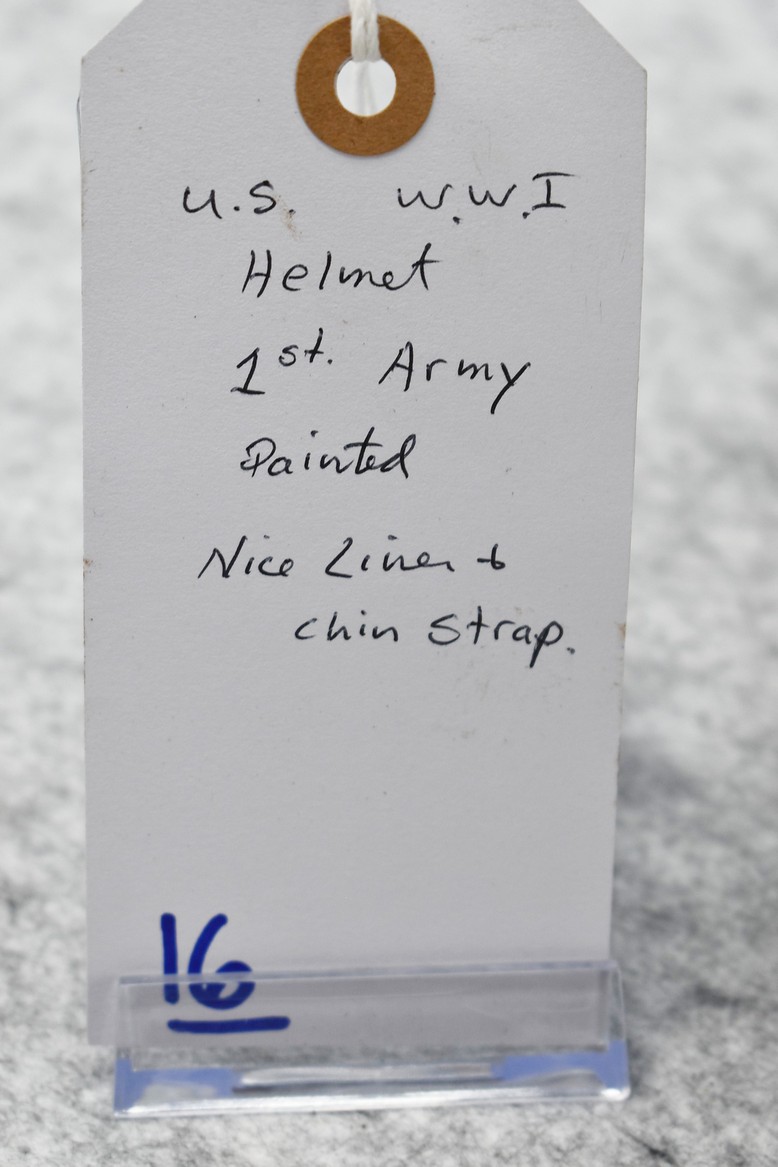 U.S. W.W.I
Helmet
1st. Army
Painted
Nice Liner &
chin strap.
16